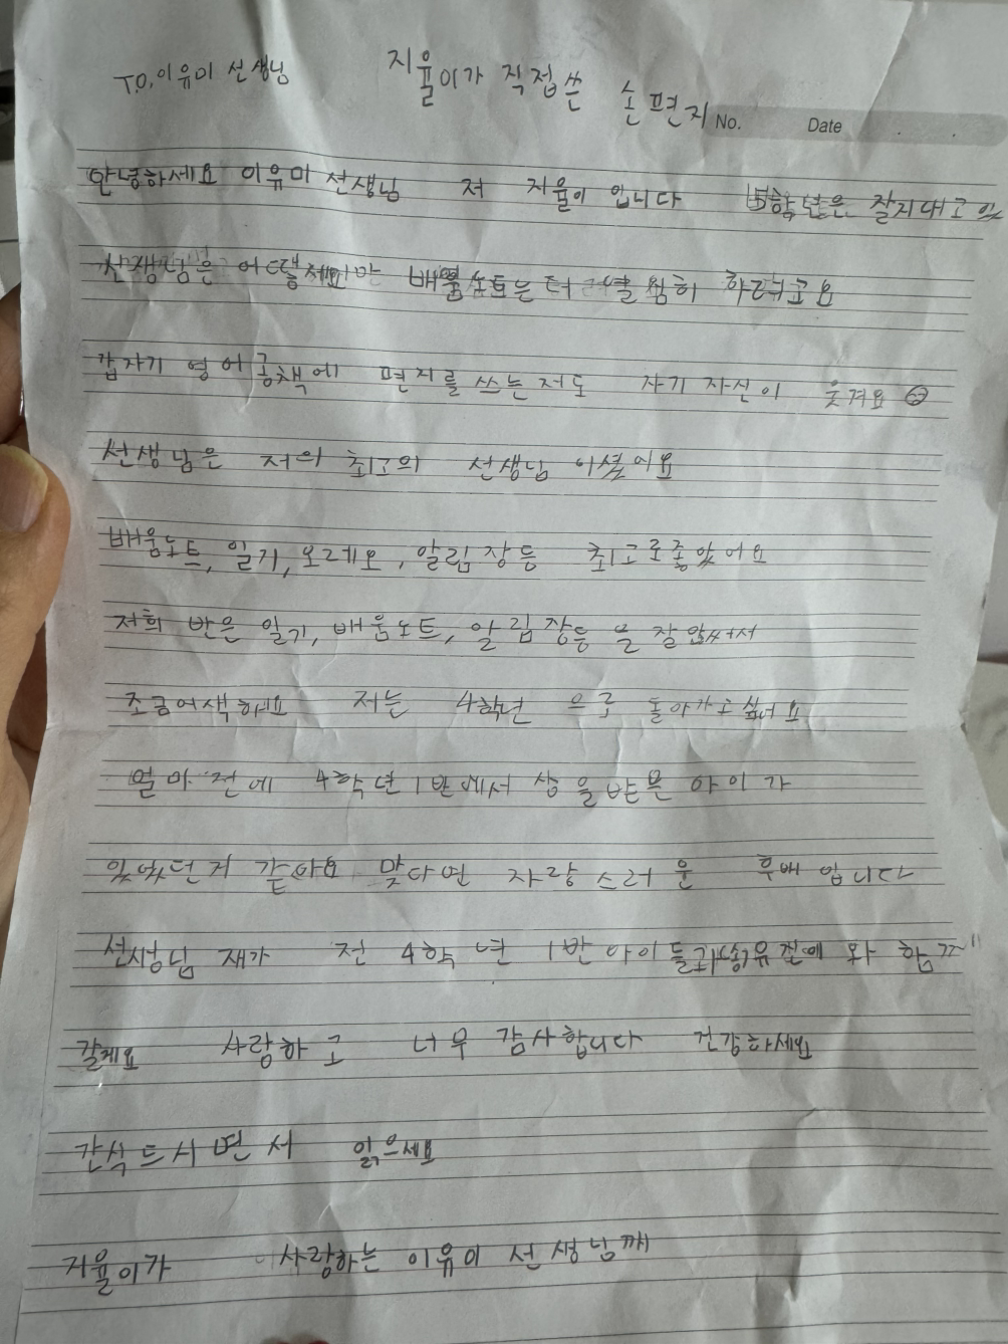 T.O. 이유미 선생님 지율이가 직접 쓴 손편지
No. Date
안녕하세요 이유미 선생님 저 지율이 입니다 5학년은 잘지내고 있
선생님은 배움노트는 더 열심히 하려고요
갑자기 영어공책에 편지를 쓰는저도 자기 자신이 웃겨요
선생님은 저의 최고의 선생님 이셨어요
배움노트, 일기, 오레오, 알림장등 최고로좋았어요
저희 반은 일기, 배움노트, 알림장등 을 잘 않써서
조금어색해요 저는 4학년 으로 돌아가고싶어요
얼마전에 4학년 1반에서 상을받은 아이가
있었던거 같아요 맞다면 자랑스러운 후배 입니다
선생님 재가 전 4학년 1반아이들과
갈게요 사랑하고 너무 감사합니다 건강하세요
간식드시면서 읽으세요
지율이가 사랑하는 이유미 선생님께